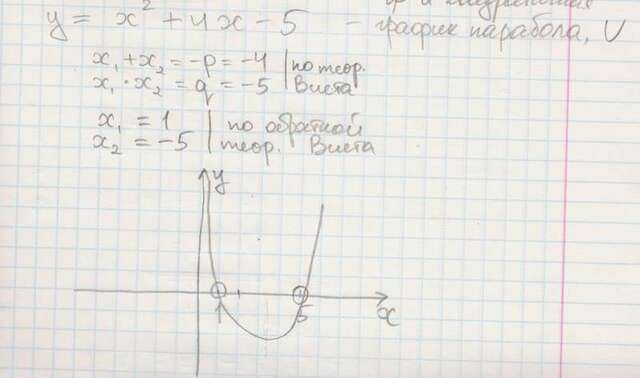 y = x² + 4x - 5 - график парабола, U
x₁ + x₂ = -p = -4 | по теор.
x₁ · x₂ = q = -5 | Виета
x₁ = 1 | по обратной
x₂ = -5 | теор. Виета
y
1
5
x